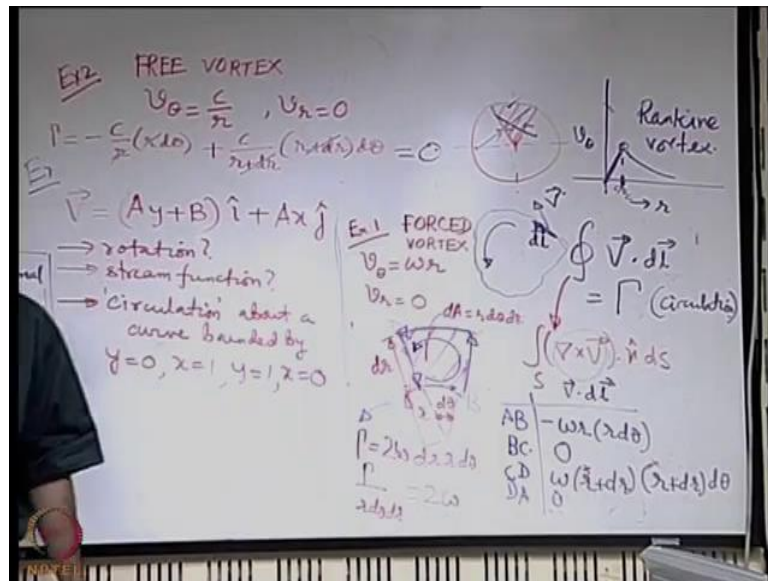 Ex2 FREE VORTEX
v_θ = c/r , v_r = 0
Γ = - c/r (r dθ) + c/(r+dr) (r+dr) dθ = 0
Ex
V⃗ = (Ay+B) î + Ax ĵ
→ rotation?
→ stream function?
→ 'circulation' about a
curve bounded by
y=0, x=1, y=1, x=0
Ex.1 FORCED
VORTEX
v_θ = ωr
v_r = 0
dA = r dθ dr
dr
dθ
Γ = 2ω dr r dθ
Γ/(r dθ dr) = 2ω
v_θ
Rankine
vortex
→ r
V⃗
dl⃗
∮ V⃗ · dl⃗
= Γ (circulation)
∫_S (∇ × V⃗) · n̂ dS
V⃗ · dl⃗
AB -ωr (r dθ)
BC 0
CD ω (r+dr) (r+dr) dθ
DA 0
NPTEL